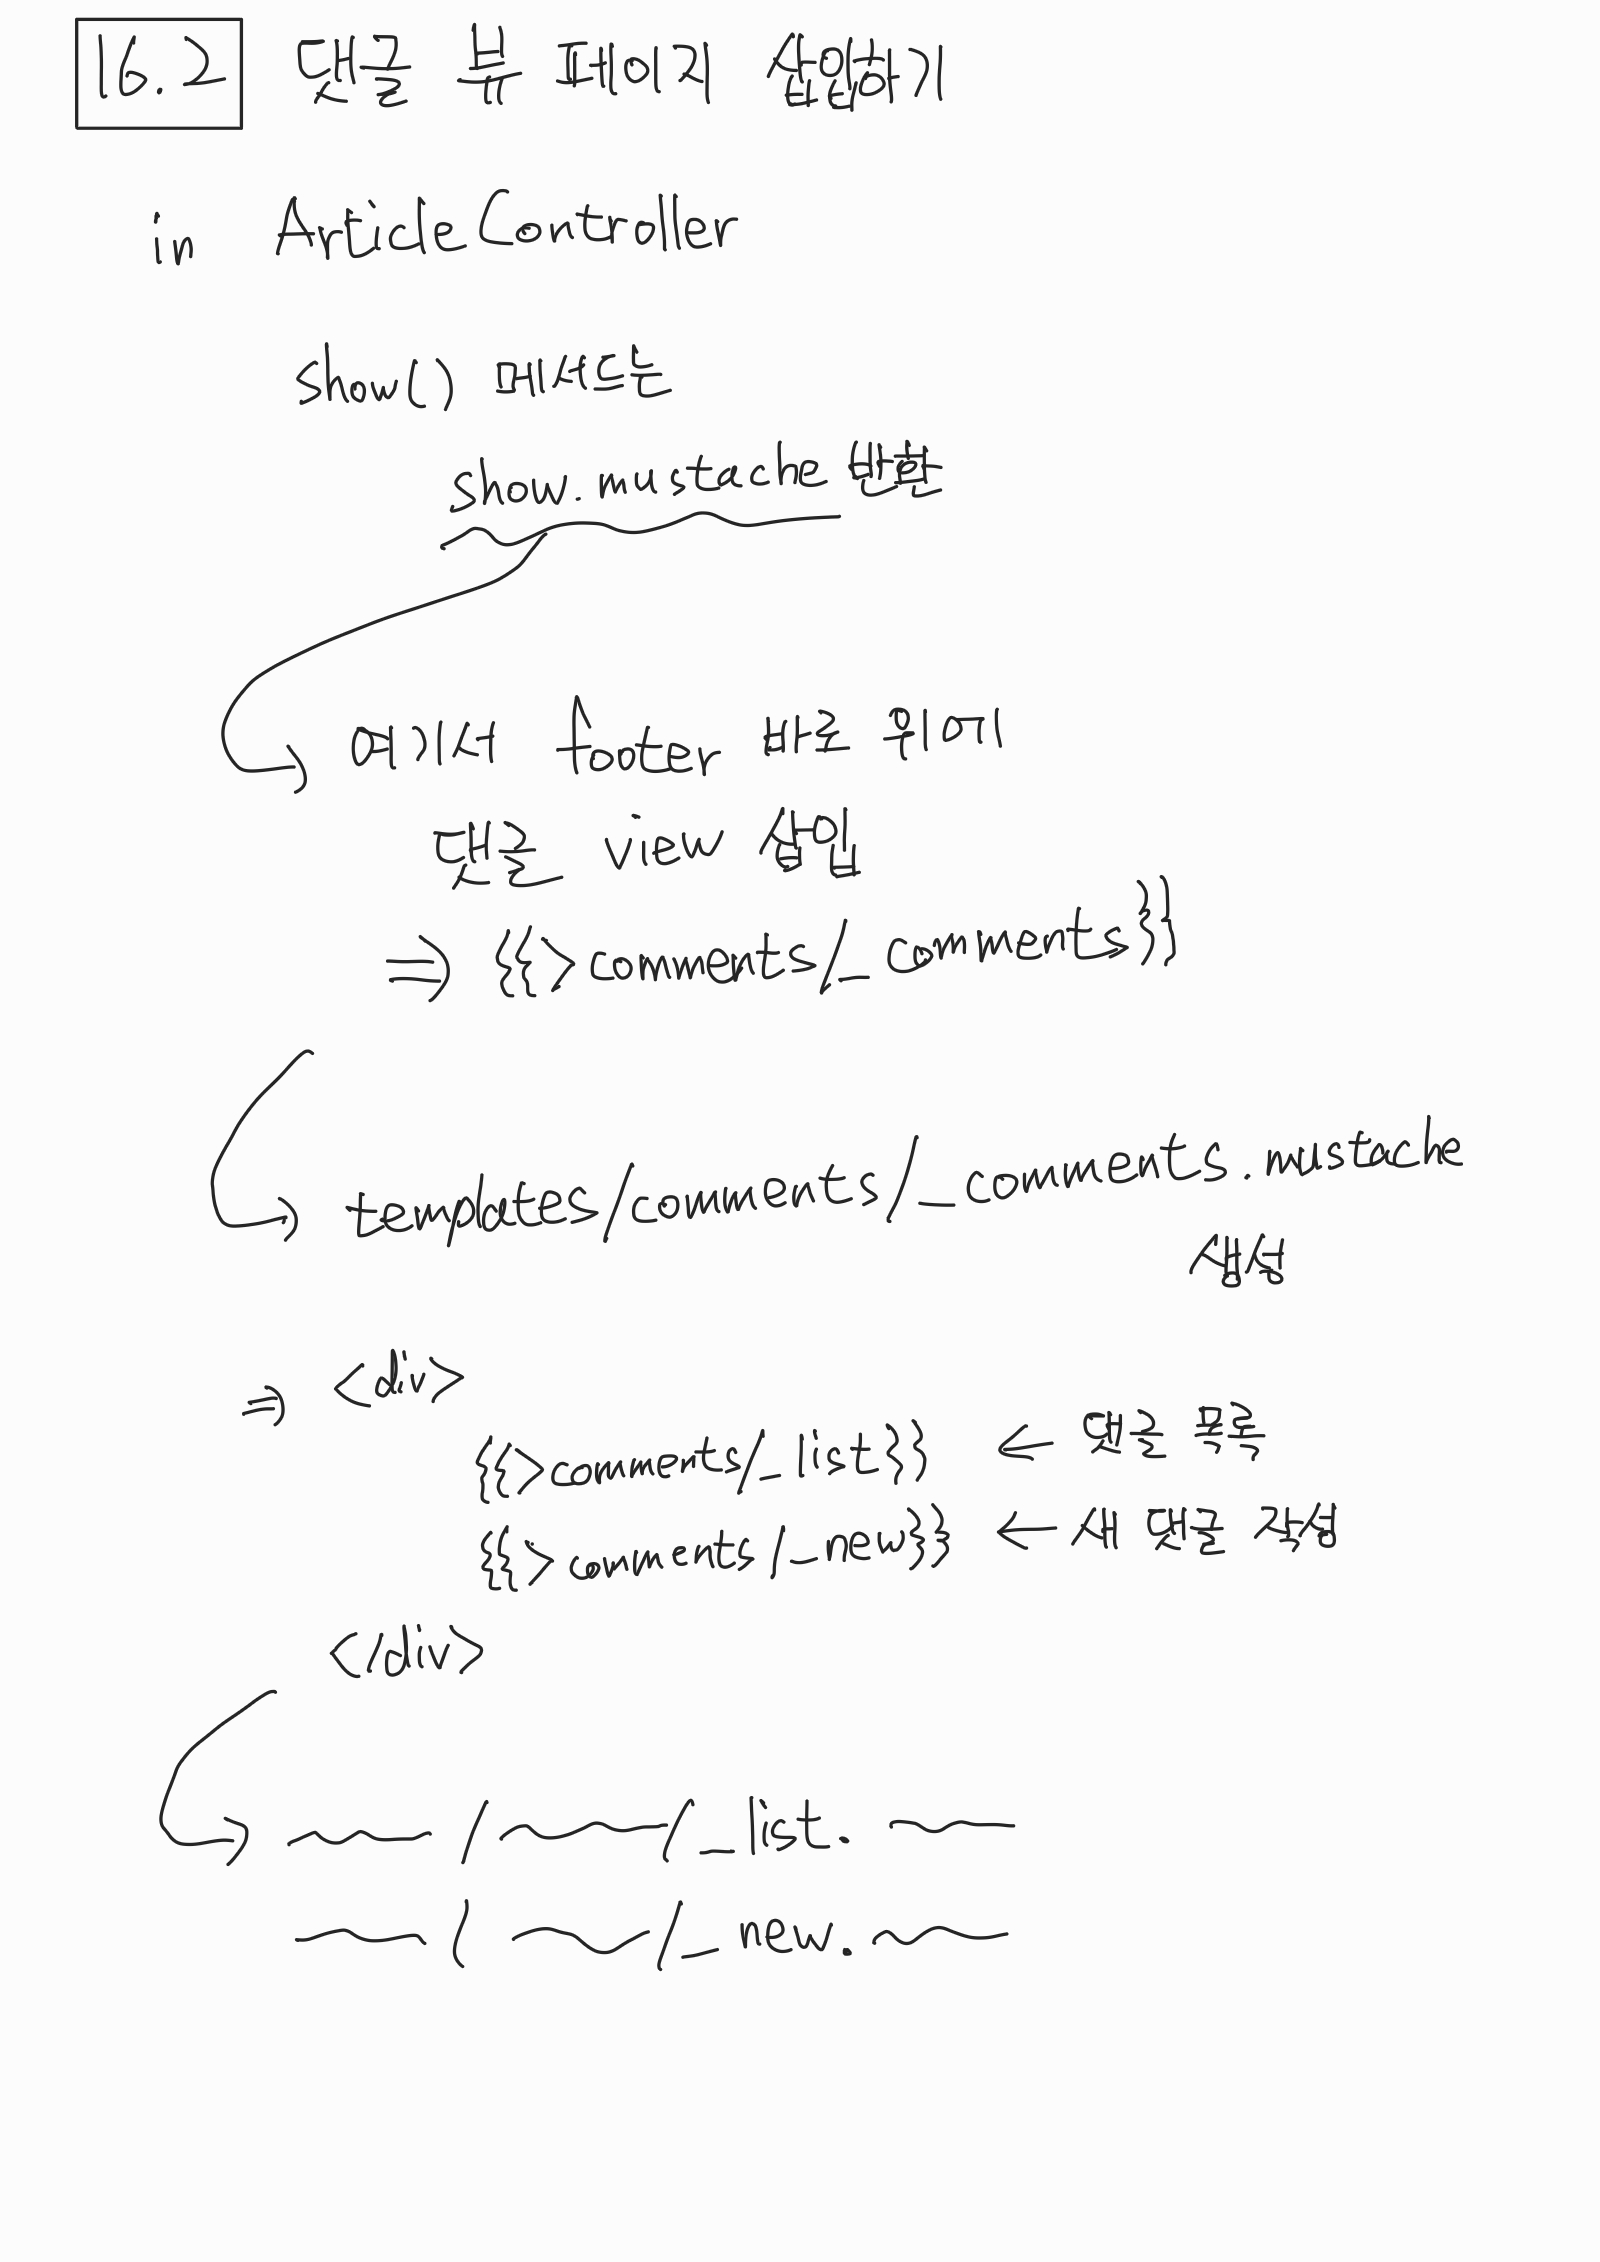 16.2 댓글 뷰 페이지 삽입하기
in ArticleController
show() 메서드는
show.mustache 반환
여기서 footer 바로 위에
댓글 view 삽입
⇒ {{>comments/_comments}}
templates/comments/_comments.mustache
생성
⇒ <div>
{{>comments/_list}} ← 댓글 목록
{{>comments/_new}} ← 새 댓글 작성
</div>
/ /_list.
/ /_new.